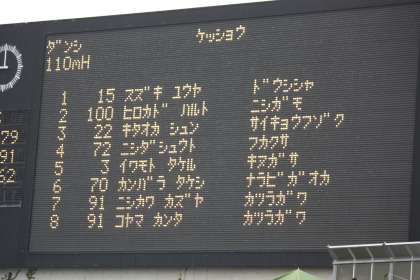 ケッショウ
ダンシ
110mH
1 15 スズキ ユウヤ ドウシシャ
2 100 ヒロカド ハルト ニシガモ
3 22 キタオカ シュン サイキョウフゾク
4 72 ニシダシュウト フカクサ
5 3 イワモト タケル キヌガサ
6 70 カンバラ タケシ ナラビガオカ
7 91 ニシカワ カズヤ カツラガワ
8 91 コヤマ カンタ カツラガワ
79
91
62